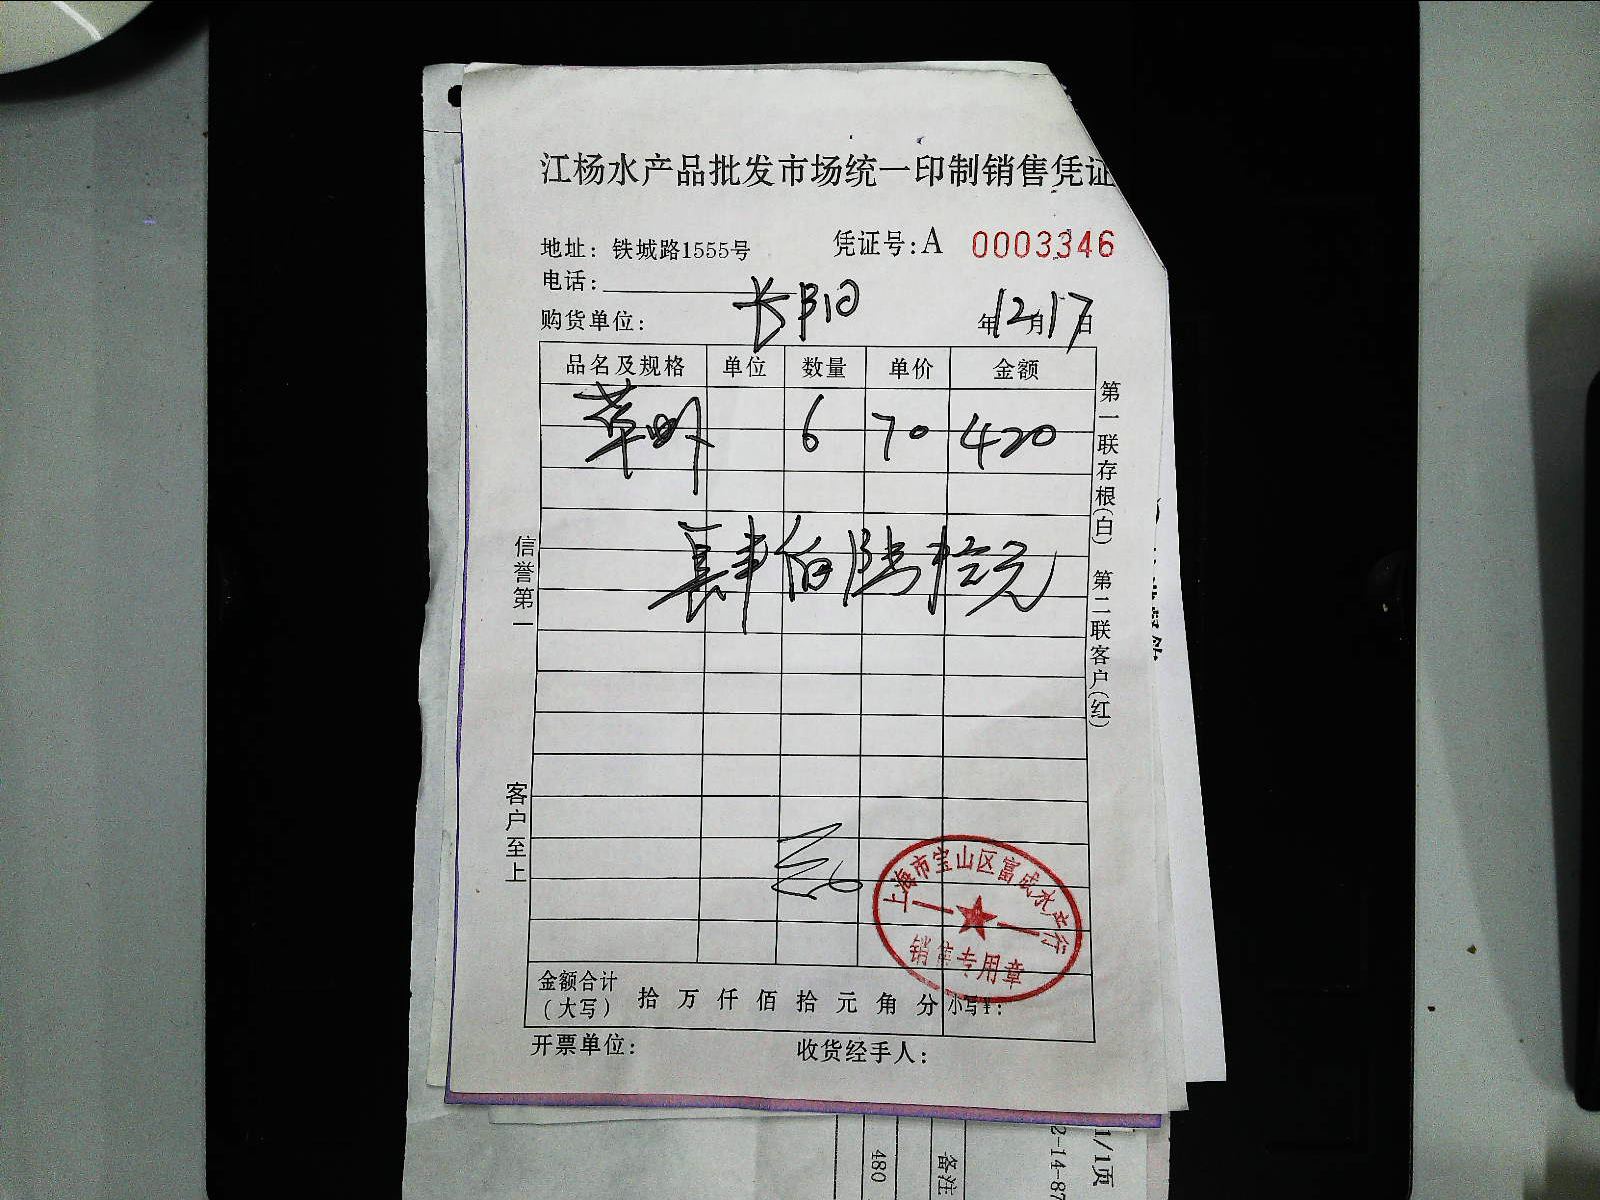 江杨水产品批发市场统一印制销售凭证
地址: 铁城路1555号
凭证号: A 0003346
电话:
购货单位: 长阳
年12月17日
品名及规格 单位 数量 单价 金额
草虾 6 70 420
肆佰陆拾元
信誉第一
客户至上
第一联存根(白) 第二联客户(红)
上海市宝山区富成水产行
销售专用章
金额合计
(大写)
拾万仟佰拾元角分
小写¥:
开票单位:
收货经手人:
1/1页
备注
480